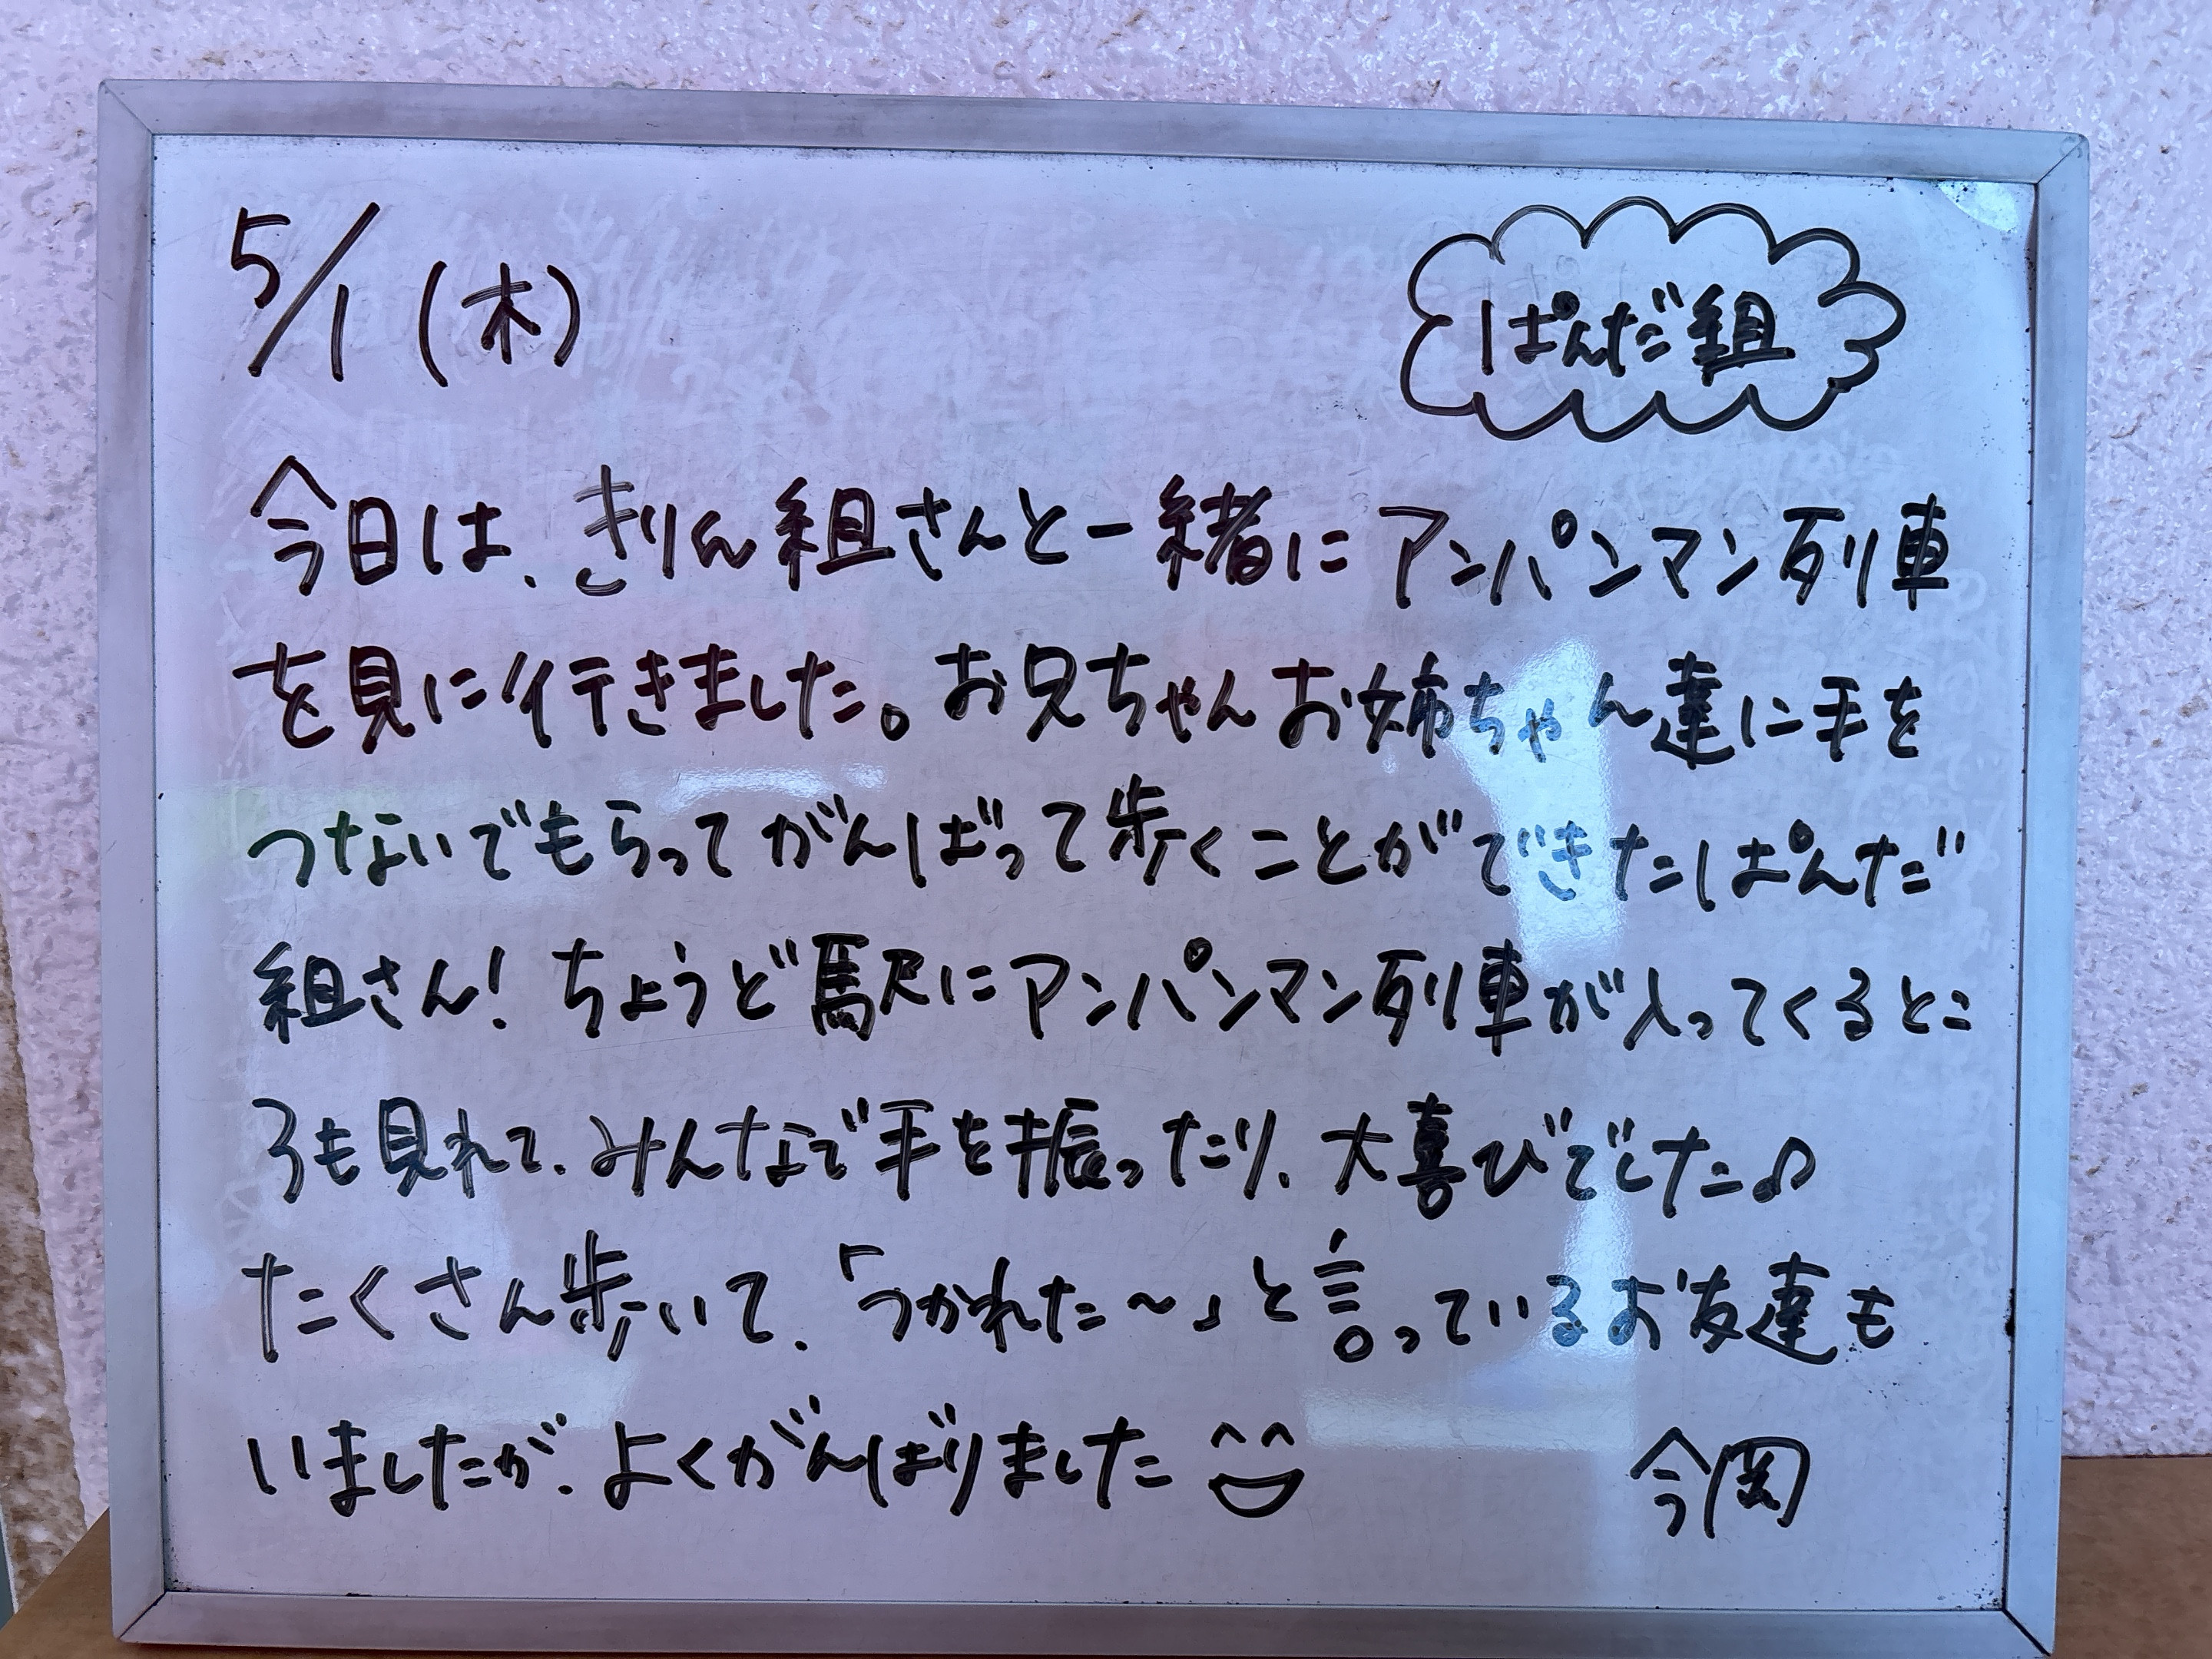 5/1(木)
ぱんだ組
今日は、きりん組さんと一緒にアンパンマン列車
を見に行きました。お兄ちゃんお姉ちゃん達に手を
つないでもらってがんばって歩くことができたぱんだ
組さん！ちょうど駅にアンパンマン列車が入ってくるとこ
ろも見れて、みんなで手を振ったり、大喜びでした♪
たくさん歩いて、「つかれた〜」と言っているお友達も
いましたが、よくがんばりました
今岡